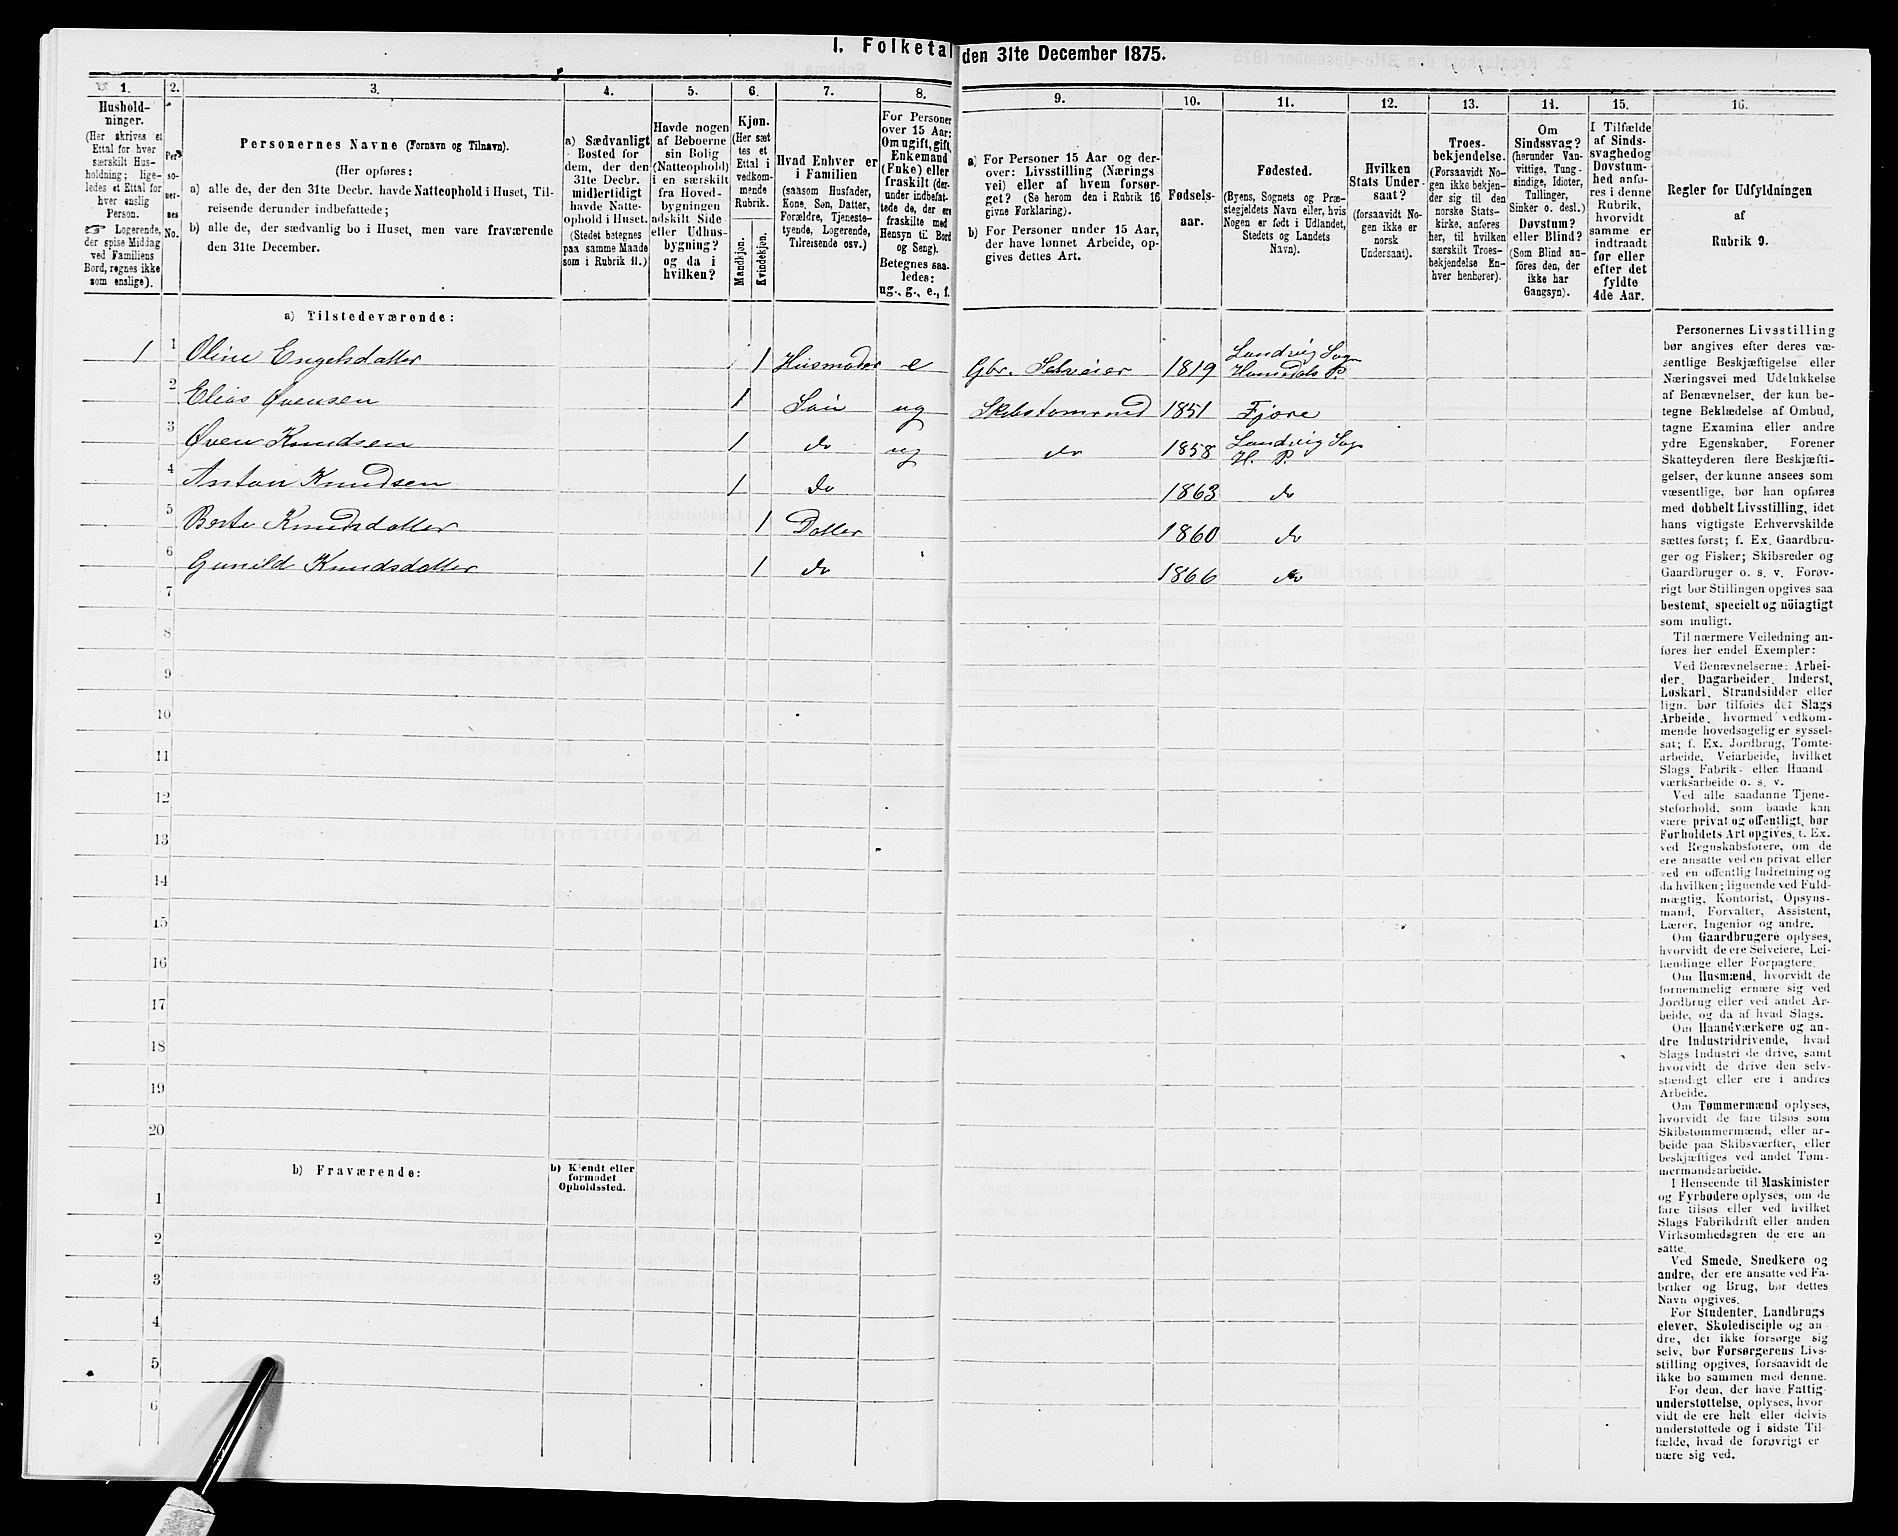 I. Folketal den 31te December 1875.
1.
Hushold-
ninger.
(Her skrives et
Ettal for hver
særskilt Hus-
holdning; lige-
ledes et Ettal for
hver enslig
Person.
Logerende,
der spise Middag
ved Familiens
Bord, regnes ikke
som enslige).
2.
Per-
so-
ner-
nes
No.
3.
Personernes Navne (Fornavn og Tilnavn).
(Her opføres:
a) alle de, der den 31te Decbr. havde Natteophold i Huset, Til-
reisende derunder indbefattede;
b) alle de, der sædvanlig bo i Huset, men vare fraværende
den 31te December.
4.
a) Sædvanligt
Bosted for
dem, der den
31te Decbr.
midlertidigt
havde Natte-
ophold i Huset.
(Stedet betegnes
paa samme Maade
som i Rubrik 11.)
5.
Havde nogen
af Beboerne
sin Bolig
(Natteophold)
i en særskilt
fra Hoved-
bygningen
adskilt Side-
eller Udhus-
bygning?
og da i
hvilken?
6.
Kjøn.
(Her sæt
tes et
Ettal i
vedkom-
mende
Rubrik.
Mandkjøn.
Kvindekjøn.
7.
Hvad Enhver er
i Familien
(saasom Husfader,
Kone, Søn, Datter,
Forældre, Tjeneste-
tyende, Logerende,
Tilreisende osv.)
8.
For Personer
over 15 Aar:
Om ugift, gift,
Enkemand
(Enke) eller
fraskilt (der-
under indbefat-
tede de, der ere
fraskilte med
Hensyn til Bord
og Seng).
Betegnes saa-
ledes:
ug., g., e., f.
9.
a) For Personer 15 Aar og der-
over: Livsstilling (Nærings-
vei) eller af hvem forsør-
get? (Se herom den i Rubrik 16
givne Forklaring).
b) For Personer under 15 Aar,
der have lønnet Arbeide, op-
gives dettes Art.
10.
Fødsels-
aar.
11.
Fødested.
(Byens, Sognets og Præ-
stegjeldets Navn eller, hvis
Nogen er født i Udlandet,
Stedets og Landets
Navn).
12.
Hvilken
Stats Under-
saat?
(forsaavidt No-
gen ikke er
norsk
Undersaat).
13.
Troes-
bekjendelse.
(Forsaavidt No-
gen ikke bekjen-
der sig til den
norske Stats-
kirke, anføres
her, til hvilken
særskilt Troes-
bekjendelse En-
hver henhører).
14.
Om
Sindssvag?
(herunder Van-
vittige, Tung-
sindige, Idioter,
Tullinger,
Sinker o. desl.)
Døvstum?
eller Blind?
(Som Blind an-
føres den, der
ikke har
Gangsyn).
15.
I Tilfælde
af Sinds-
svaghed og
Døvstum-
hed anfø-
res i denne
Rubrik,
hvorvidt
samme er
indtraadt
før eller
efter det
fyldte
4de Aar.
16.
Regler for Udfyldningen
af
Rubrik 9.
a) Tilstedeværende:
1 1 Oline Engelsdatter 1 Husmoder e Gbr. Selveier 1819 Landvig Sogn Homedals P.
2 Elias Øvensen 1 Søn ug Skibstømmermd 1851 Fjære
3 Øven Knudsen 1 do ug do 1858 Landvig Sogn H. P.
4 Anton Knudsen 1 do 1863 do
5 Berte Knudsdatter 1 Datter 1860 do
6 Gunild Knudsdatter 1 do 1866 do
7
8
9
10
11
12
13
14
15
16
17
18
19
20
b) Fraværende:
b) Kjendt eller
formodet
Opholdssted.
1
2
3
4
5
6
Personernes Livsstilling
bør angives efter deres væ-
sentlige Beskjæftigelse eller
Næringsvei med Udelukkelse
af Benævnelser, der kun be-
tegne Beklædelse af Ombud,
tagne Examina eller andre
ydre Egenskaber. Forener
Skatteyderen flere Beskjæfti-
gelser, der kunne ansees som
væsentlige, bør han opføres
med dobbelt Livsstilling, idet
hans vigtigste Erhvervskilde
sættes først; f. Ex. Gaardbru-
ger og Fisker; Skibsreder og
Gaardbruger o. s. v. Forøv-
rigt bør Stillingen opgives saa
bestemt, specielt og nöiagtigt
som muligt.
Til nærmere Veiledning an-
føres her endel Exempler:
Ved Benævnelserne: Arbei-
der, Dagarbeider, Inderst,
Løskarl, Strandsidder eller
lign. bør tilføies det Slags
Arbeide, hvormed vedkom-
mende hovedsagelig er syssel-
sat; f. Ex. Jordbrug, Tomte-
arbeide, Veiarbeide, hvilket
Slags Fabrik- eller Haand-
værksarbeide o. s. v.
Ved alle saadanne Tjene-
steforhold, som baade kan
være privat og offentligt, bør
Forholdets Art opgives, f. Ex.
ved Regnskabsførere, om de
ere ansatte ved en privat eller
ved en offentlig Indretning og
da hvilken; lignende ved Fuld-
mægtig, Kontorist, Opsyns-
mand, Forvalter, Assistent,
Lærer, Ingeniør og andre.
Om Gaardbrugere oplyses,
hvorvidt de ere Selveiere, Lei-
lændinge eller Forpagtere.
Om Husmænd, hvorvidt de
fornemmelig ernære sig ved
Jordbrug eller ved andet Ar-
beide, og da af hvad Slags.
Om Haandværkere og an-
dre Industridrivende, hvad
Slags Industri de drive, samt
hvorvidt de drive den selv-
stændigt eller ere i andres
Arbeide.
Om Tømmermænd oplyses,
hvorvidt de fare tilsøs som
Skibstømmermænd, eller ar-
beide paa Skibsværfter, eller
beskjæftiges ved andet Tøm-
mermandsarbeide.
I Henseende til Maskinister
og Fyrbødere oplyses, om de
fare tilsøs eller ved hvilket
Slags Fabrikdrift eller anden
Virksomhedsgren de ere an-
satte.
Ved Smede, Snedkere og
andre, der ere ansatte ved Fa-
briker og Brug, bør dettes
Navn opgives.
For Studenter, Landbrugs-
elever, Skoledisciple og an-
dre, der ikke forsørge sig
selv, bør Forsørgerens Livs-
stilling opgives, forsaavidt de
ikke bo sammen med denne.
For dem, der have Fattig-
understøttelse, oplyses, hvor-
vidt de ere helt eller delvis
understøttede og i sidste Til-
fælde, hvad de forøvrigt er-
nære sig ved.